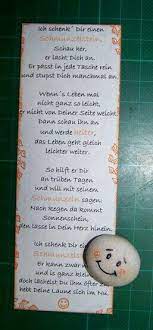 Ich schenk´ Dir einen
Schmunzelstein,
Schau her,
er lacht Dich an.
Er passt in jede Tasche rein
und stupst Dich manchmal an.
Wenn´s Leben mal
nicht ganz so leicht,
er nicht von Deiner Seite weicht
Dann schau ihn an
und werde heiter,
das Leben geht gleich
leichter weiter.
So hilft er Dir
an trüben Tagen
und will mit seinen
Schmunzeln sagen:
Nach Regen da kommt
Sonnenschein,
den lasse in Dein Herz hinein.
Ich schenk Dir ein
Schmunzelstein
Er kann zwar
und is ganz kle
doch lächelst Du ihn öfter
hebt Deine Laune sich im Nu.